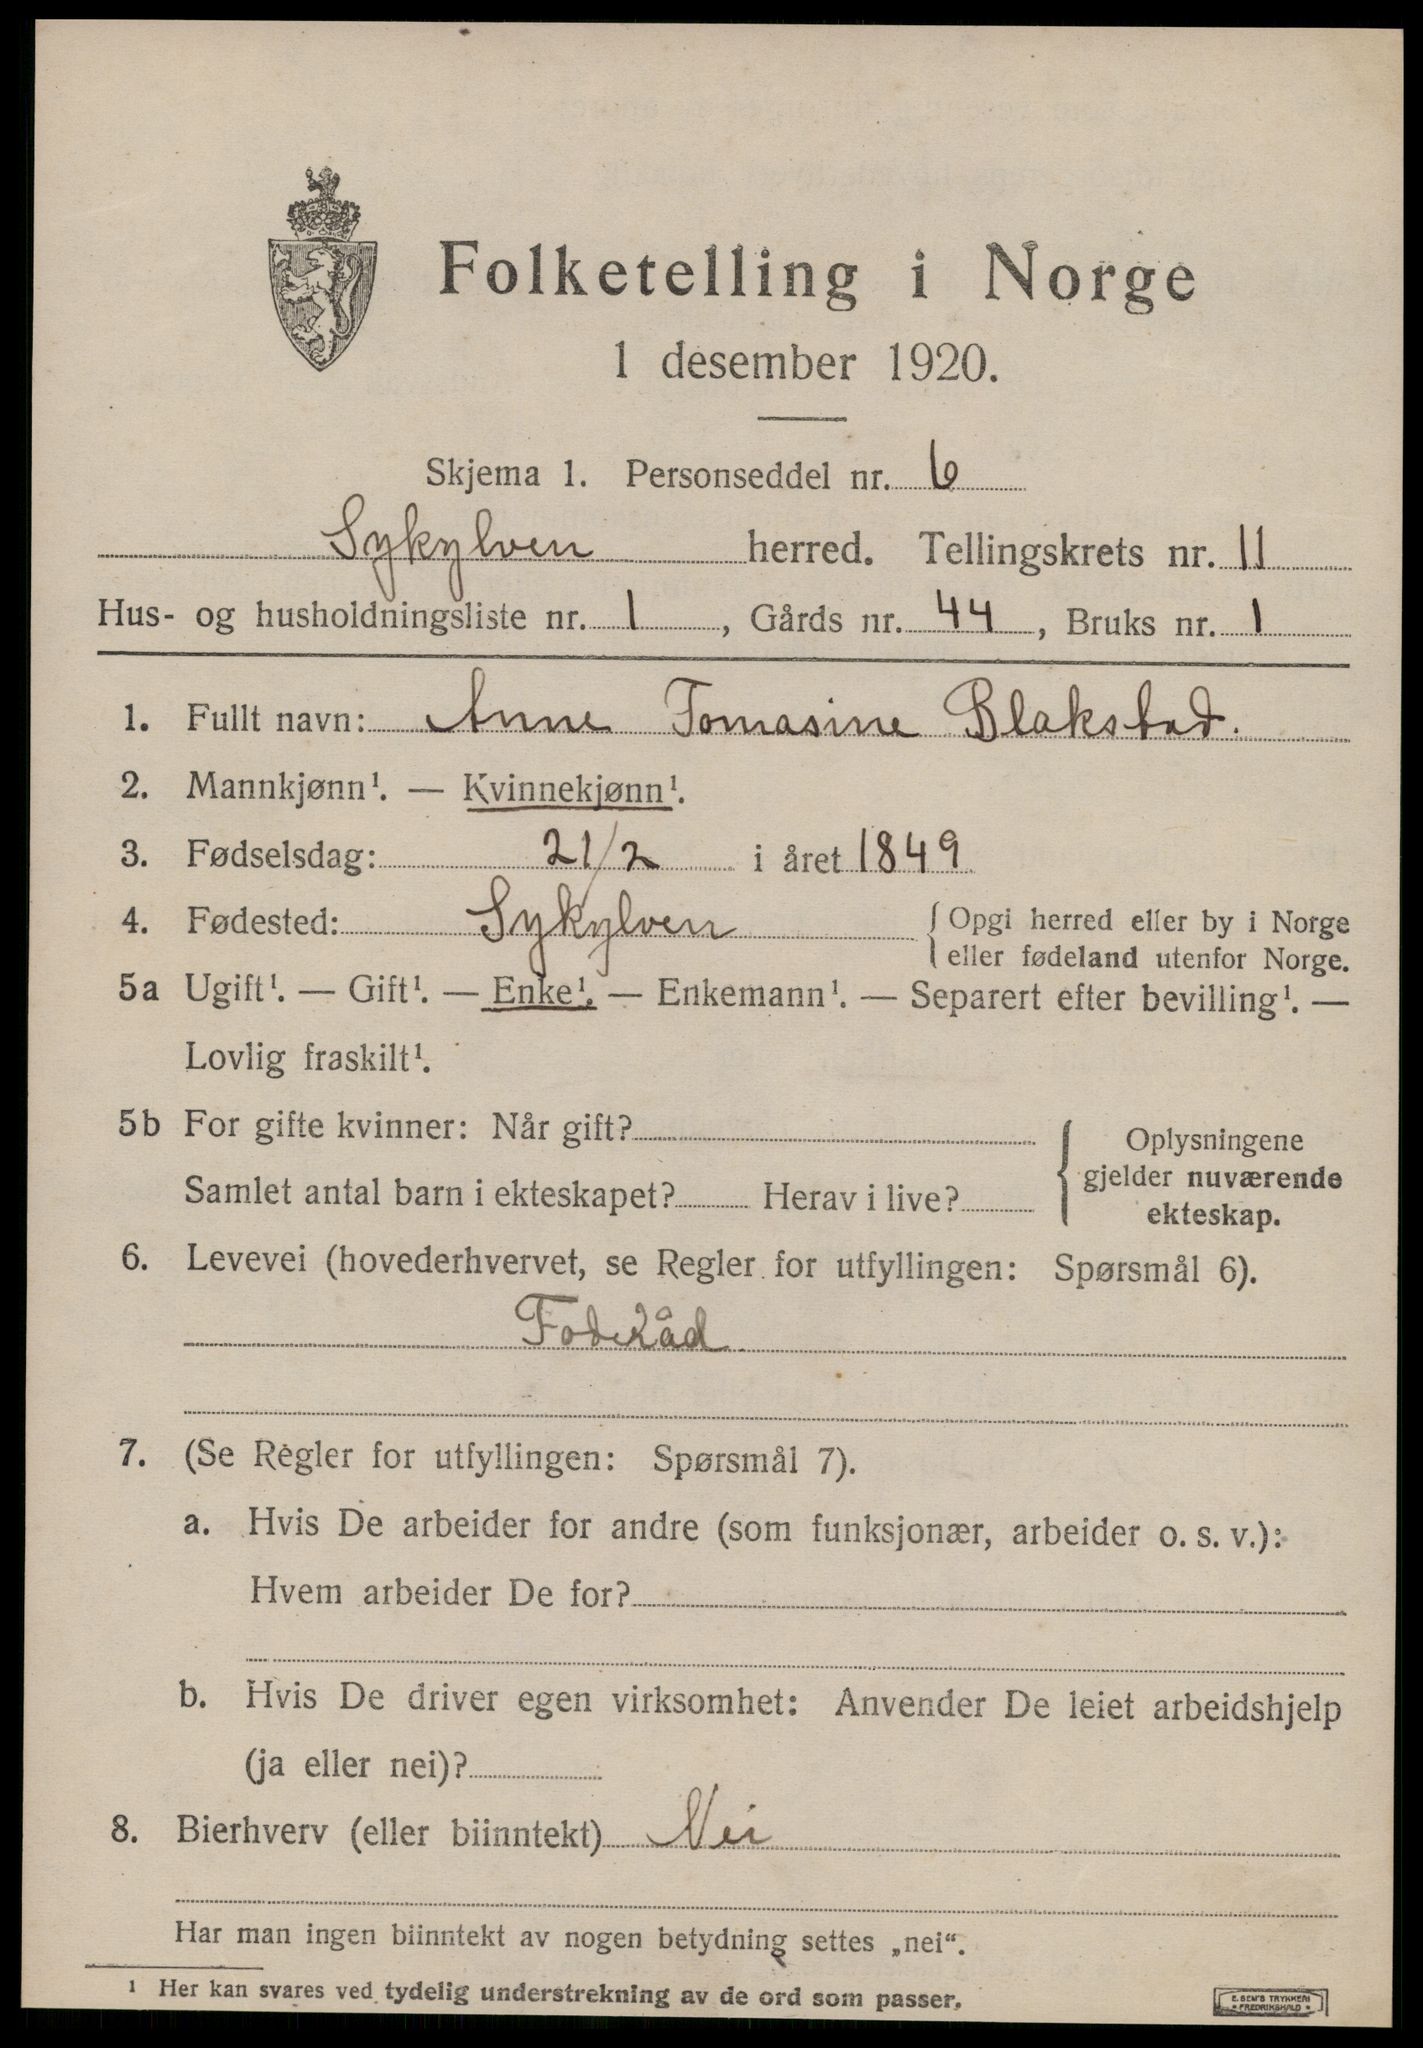 Folketelling i Norge
1 desember 1920.
Skjema 1. Personseddel nr. 6
Sykylven herred. Tellingskrets nr. 11
Hus- og husholdningsliste nr. 1, Gårds nr. 44, Bruks nr. 1
1. Fullt navn: Anne Tomasine Blakstad.
2. Mannkjønn¹. — Kvinnekjønn¹.
3. Fødselsdag: 21/2 i året 1849
4. Fødested: Sykylven { Opgi herred eller by i Norge
eller fødeland utenfor Norge.
5a Ugift¹. — Gift¹. — Enke¹. — Enkemann¹. — Separert efter bevilling¹. —
Lovlig fraskilt¹.
5b For gifte kvinner: Når gift?
Samlet antal barn i ekteskapet? Herav i live?
{ Oplysningene
gjelder nuværende
ekteskap.
6. Levevei (hovederhvervet, se Regler for utfyllingen: Spørsmål 6).
Foderåd
7. (Se Regler for utfyllingen: Spørsmål 7).
a. Hvis De arbeider for andre (som funksjonær, arbeider o. s. v.):
Hvem arbeider De for?
b. Hvis De driver egen virksomhet: Anvender De leiet arbeidshjelp
(ja eller nei)?
8. Bierhverv (eller biinntekt) Nei
Har man ingen biinntekt av nogen betydning settes „nei“.
¹ Her kan svares ved tydelig understrekning av de ord som passer.
E. SEM'S TRYKKERI
* FREDRIKSHALD *